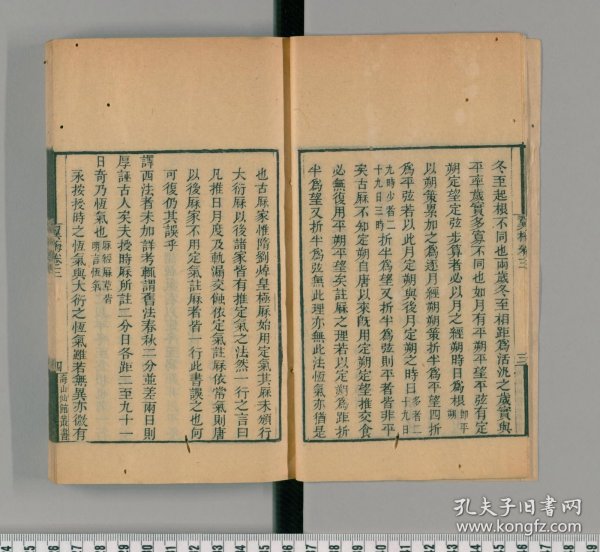 冬至起根不同也兩歲冬至相距爲活汎之歲實與
平率歲實多寡不同也如月有平朔平望平弦有定
朔定望定弦步算者必以月之經朔時日爲根即平朔
以朔策累加之爲逐月經朔朔策折半爲平望四折
爲平弦若以此月定朔與後月定朔之時日多者二十九日
九時少者二十九日三時折半爲望又折半爲弦則平者皆非平
矣古厤不知定朔自唐以來旣用定朔定望推交食
必無復用平朔平望矣註厤之理若以定朔爲距折
半爲望又折半爲弦無此理亦無此法恆氣亦猶是
也古厤家惟隋劉焯皇極厤始用定氣其厤未頒行
大衍厤以後諸家皆有推定氣之法然一行之言曰
凡推日月度及軌漏交蝕依定氣註厤依常氣則唐
以後厤家不用定氣註厤者皆一行此書誤之也何
可復仍其誤乎
譯西法者未加詳考輒謂舊法春秋二分並差兩日則
厚誣古人矣夫授時厤所註二分日各距二至九十一
日奇乃恆氣也厤經厤草皆明言恆氣
永按授時之恆氣與大衍之恆氣雖若無異亦微有
翼梅卷三
三
翼梅卷三
四
海山仙館叢書
孔夫子旧书网
www.kongfz.com